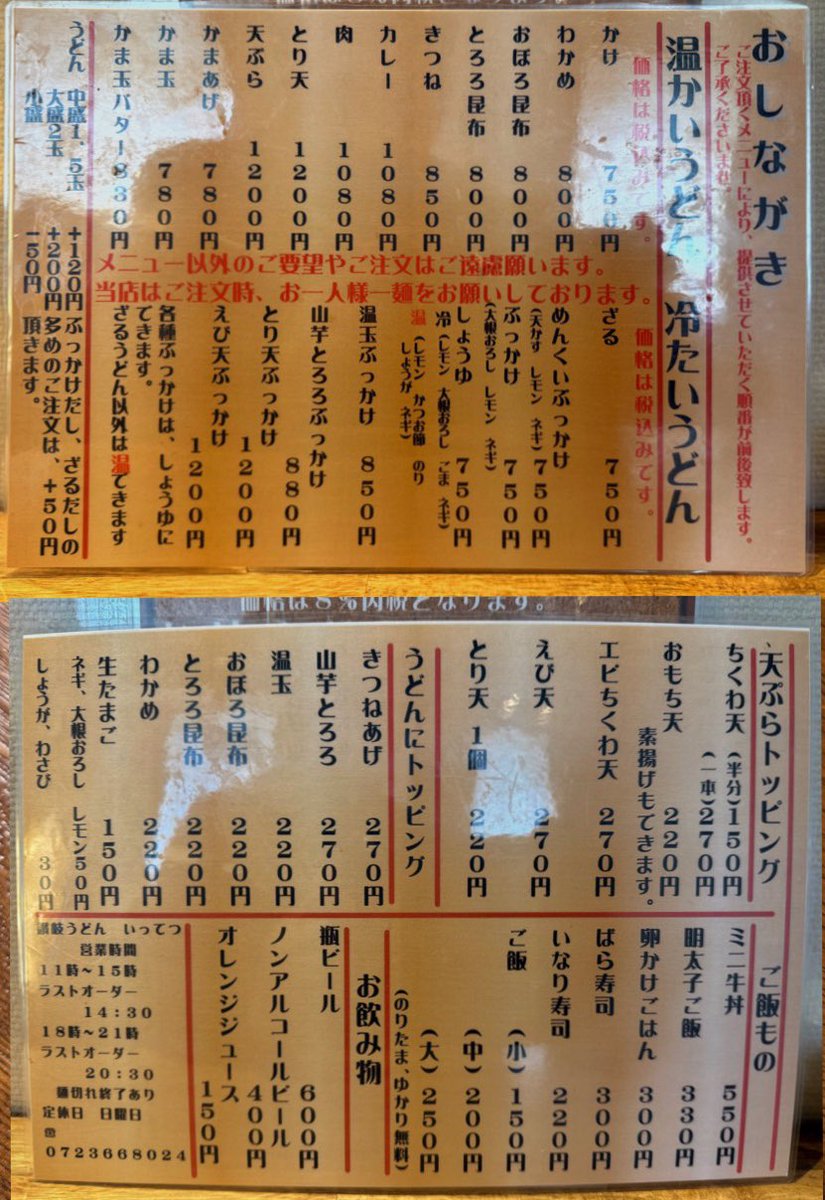 おしながき
ご注文頂くメニューにより、提供させていただく順番が前後致します。
ご了承くださいませ。
温かいうどん
価格は税込みです。
かけ 750円
わかめ 800円
おぼろ昆布 800円
とろろ昆布 800円
きつね 850円
カレー 1080円
肉 1080円
とり天 1200円
天ぷら 1200円
かまあげ 780円
かま玉 780円
かま玉バター 830円
うどん 中盛1、5玉 +120円
大盛2玉 +200円
小盛 -50円
メニュー以外のご要望やご注文はご遠慮願います。
当店はご注文時、お一人様一麺をお願いしております。
冷たいうどん
価格は税込みです。
ざる 750円
めんくいぶっかけ
(天かす レモン ネギ) 750円
ぶっかけ 750円
(大根おろし レモン ネギ)
しょうゆ 750円
冷 (レモン 大根おろし ごま ネギ)
温 (レモン かつお節 のり
しょうが ネギ)
温玉ぶっかけ 850円
山芋とろろぶっかけ 880円
とり天ぶっかけ 1200円
えび天ぶっかけ 1200円
各種ぶっかけは、しょうゆに
できます。
ざるうどん以外は温できます
ぶっかけだし、ざるだしの
多めのご注文は、+50円
頂きます。
価格は8%内税となります。
天ぷらトッピング
ちくわ天 (半分) 150円
(一本) 270円
おもち天 220円
素揚げもできます。
エビちくわ天 270円
えび天 270円
とり天 1個 220円
うどんにトッピング
きつねあげ 270円
山芋とろろ 270円
温玉 220円
おぼろ昆布 220円
とろろ昆布 220円
わかめ 220円
生たまご 150円
ネギ、大根おろし レモン50円
しょうが、わさび 30円
ご飯もの
ミニ牛丼 550円
明太子ご飯 330円
卵かけごはん 300円
ばら寿司 300円
いなり寿司 220円
ご飯 (小) 150円
(中) 200円
(大) 250円
(のりたま、ゆかり無料)
お飲み物
瓶ビール 600円
ノンアルコールビール 400円
オレンジジュース 150円
讃岐うどん いってつ
営業時間
11時~15時
ラストオーダー
14:30
18時~21時
ラストオーダー
20:30
麺切れ終了あり
定休日 日曜日
☎
0723668024